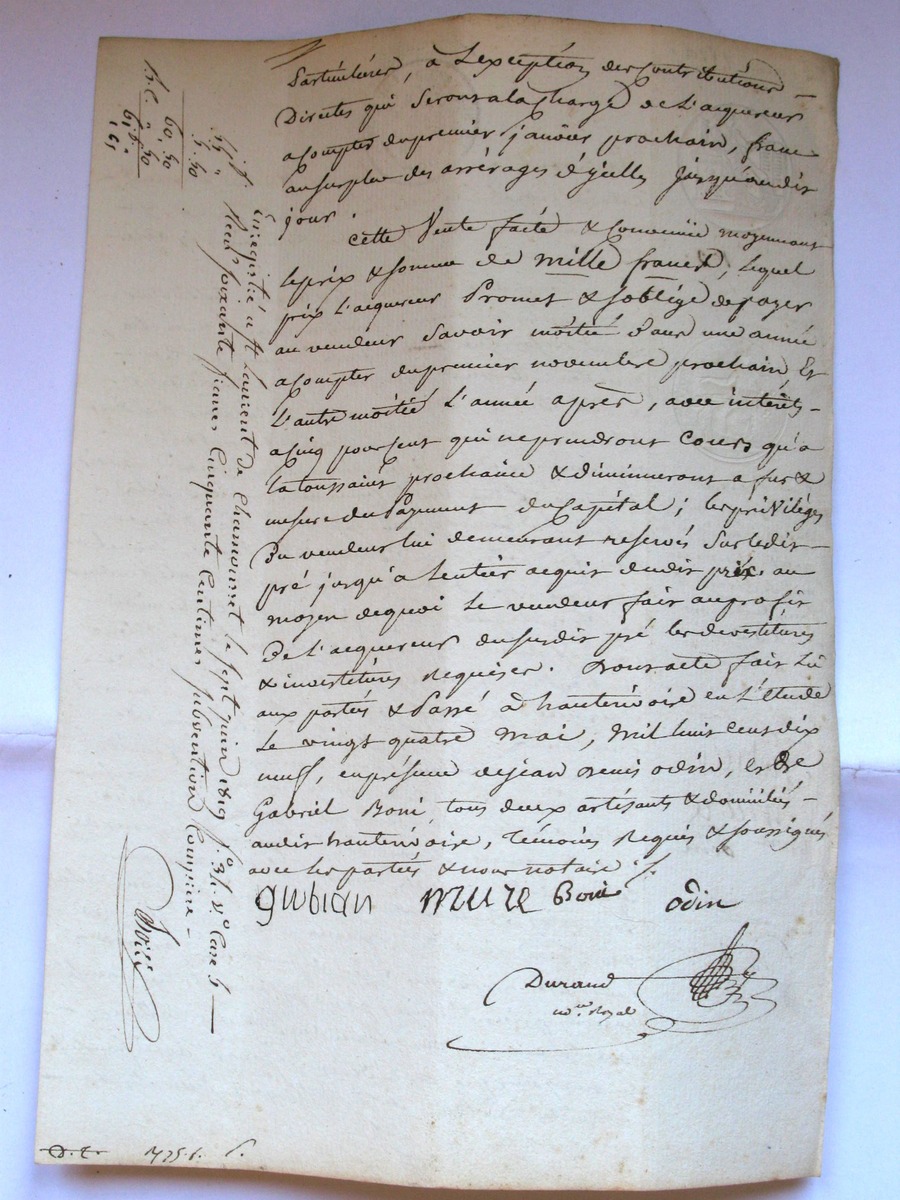 particulières, à L'exception des Contributions
Directes qui Seront a la charge de L'acquereur
a Compter du premier janvier prochain, franc
au surplus des arrérages d'ycelles jusqu'audit
jour.
Cette Vente faite & Convenüe moyennant
le prix & somme de mille francs, lequel
prix L'acquereur Promet & s'oblige de payer
au vendeur Savoir moitié dans une année
a Compter du premier novembre prochain, Et
L'autre moitié L'année après, avec intérêts
a Cinq pour Cent qui ne prendront Cours qu'a
la toussaint prochaine & diminueront a fur &
mesure du Payement du Capital; les privilèges
Du vendeur lui demeurant reservés Sur ledit
pré jusqu'a L'entier acquit dudit prix. au
moyen de quoi Le vendeur fait au profit
De L'acquereur du susdit pré les devestitures
& investitures Requises. Dont acte fait Lu
aux parties & Passé à hauterivoire en L'étude
Le vingt quatre mai, mil huit cent dix
neuf, en présence de jean denis odin, et de
Gabriel Boni, tous deux artisants & domiciliés
audit hauterivoire, témoins Requis & soussignés
avec les parties & nous notaire
gubian mure Boni odin
Durand
nore. Royal
Enregistré a St Laurent de Chamousset le sept juin 1819 fo. 34 vo. Case 5
Reçu soixante francs Cinquante Centimes subvention Comprise
55 "
5. 50
60, 50
60. 50